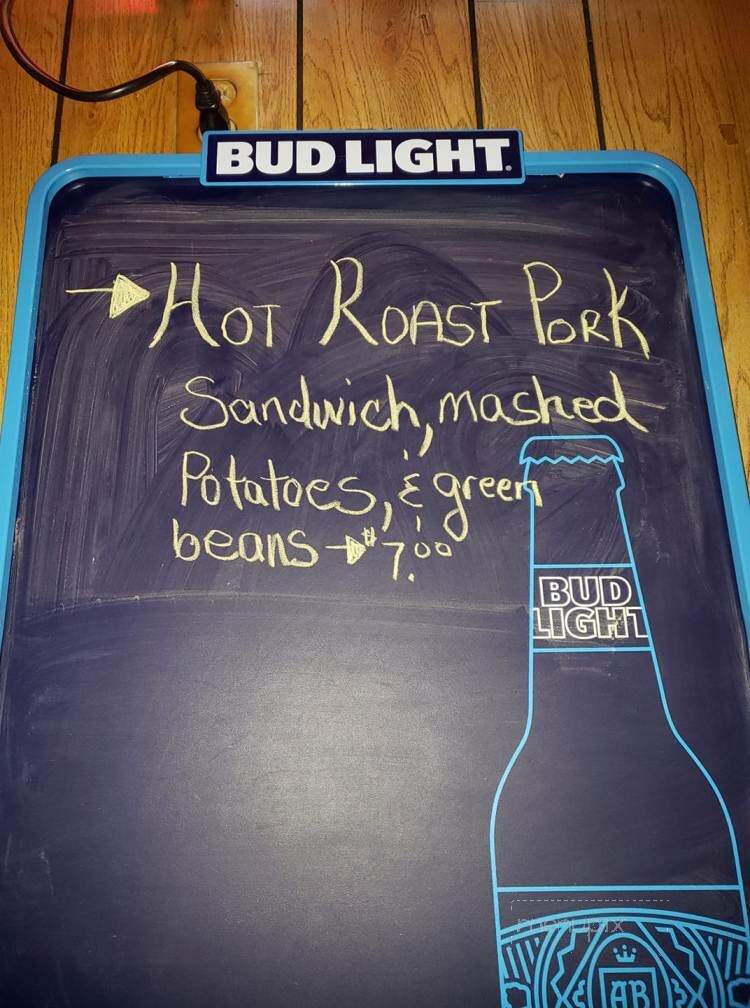 BUD LIGHT.
HOT ROAST PORK
Sandwich, mashed
Potatoes, & green
beans → $7.00
BUD
LIGHT
AB